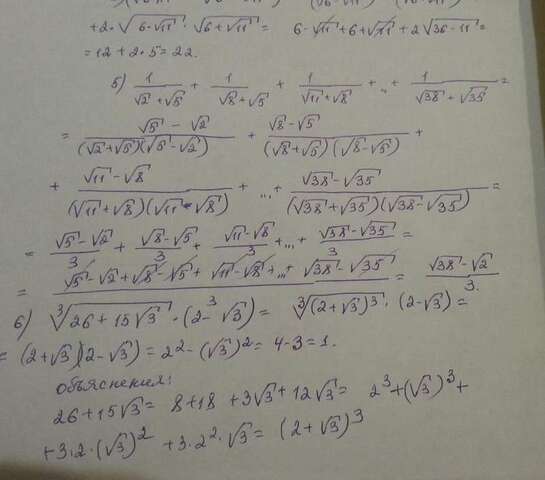 +2·√(6-√11) · √(6+√11) = 6-√11+6+√11+2√(36-11) =
= 12+2·5=22.
5) 1/(√2+√5) + 1/(√8+√5) + 1/(√11+√8) + ... + 1/(√38+√35) =
= (√5-√2)/((√2+√5)(√5-√2)) + (√8-√5)/((√8+√5)(√8-√5)) +
+ (√11-√8)/((√11+√8)(√11-√8)) + ... + (√38-√35)/((√38+√35)(√38-√35)) =
= (√5-√2)/3 + (√8-√5)/3 + (√11-√8)/3 + ... + (√38-√35)/3 =
= (√5-√2+√8-√5+√11-√8+...+√38-√35)/3 = (√38-√2)/3.
6) ∛(26+15√3) · (2-√3) = ∛((2+√3)³) · (2-√3) =
= (2+√3)(2-√3) = 2²-(√3)² = 4-3=1.
объяснения:
26+15√3 = 8+18+3√3+12√3 = 2³+(√3)³+
+3·2·(√3)²+3·2²·√3 = (2+√3)³